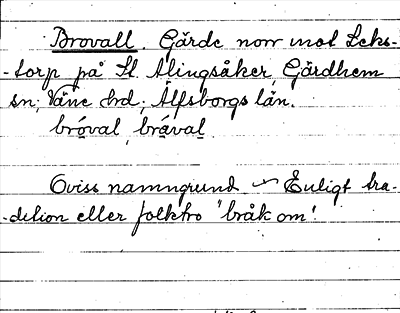 Brovall. Gärde norr mot Leks-
-torp på St. Alingsåker, Gärdhem
sn; Väne hrd; Älfsborgs län.
bróval bråval
Oviss namngrund – Enligt tra-
-dition eller folktro "bråk om".